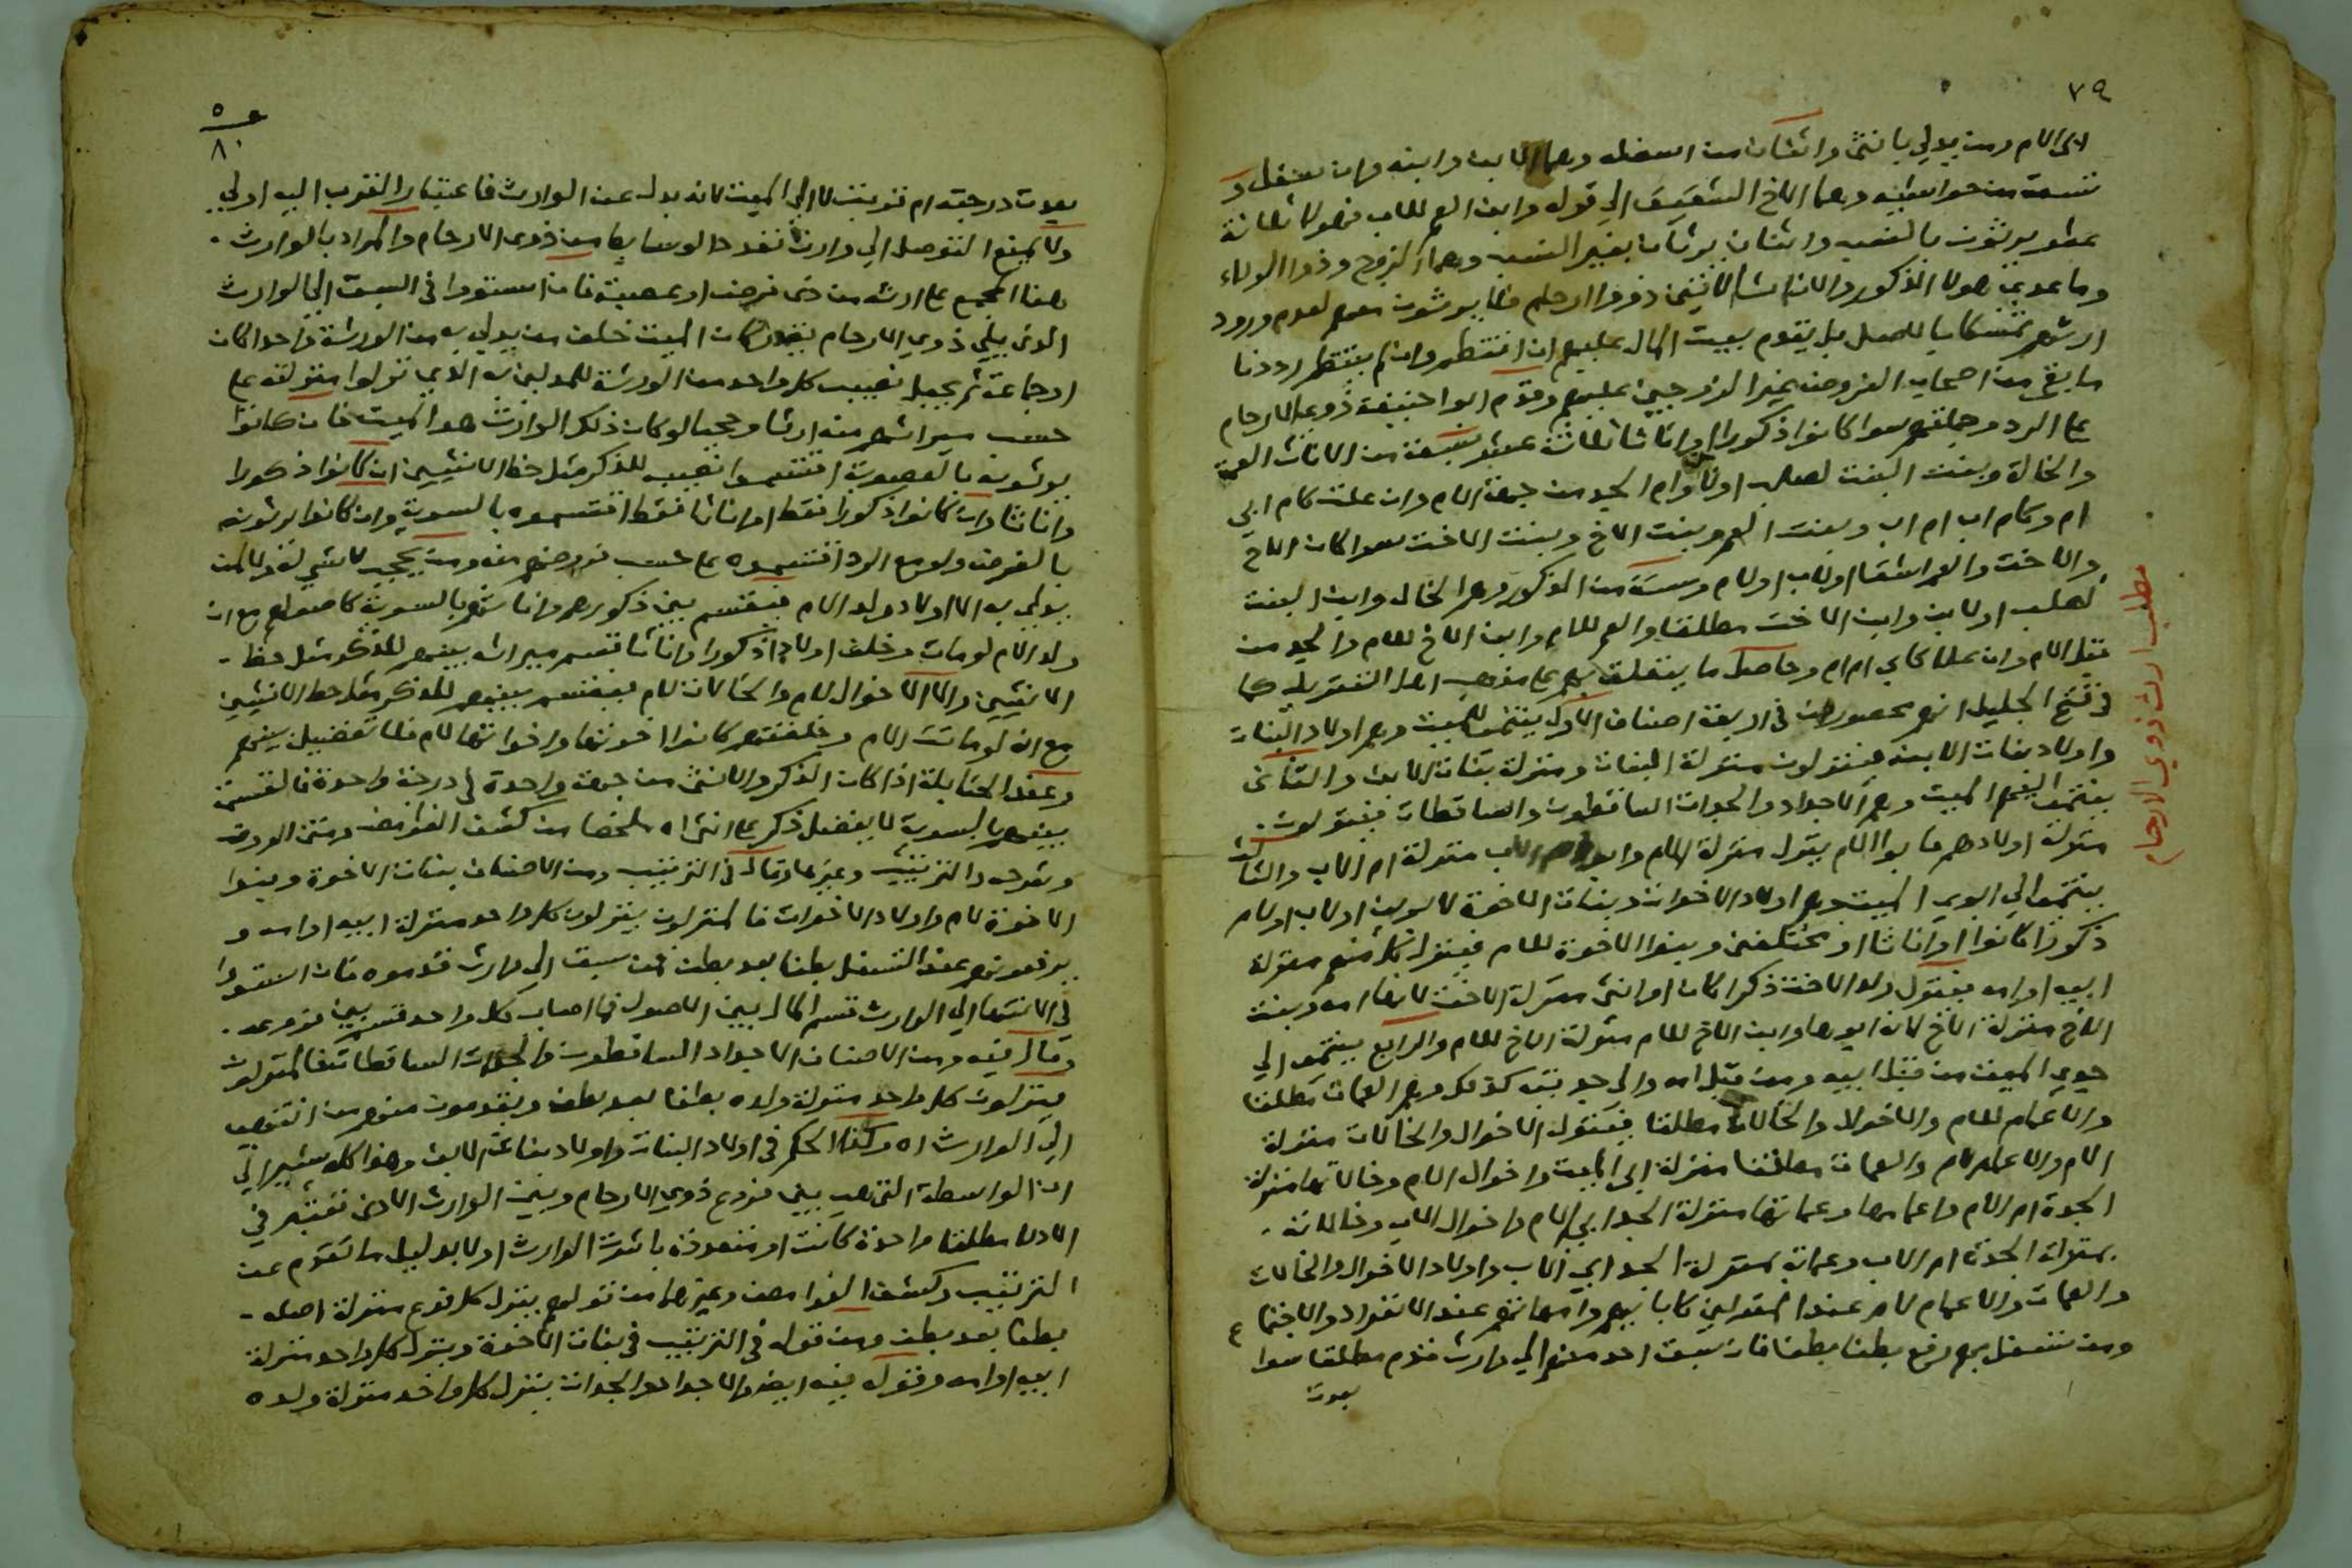 ٧٩
ابى الام ومن يدلي بانثى واثنان من اسفله وهما الابن وابنه وان سفل و
تسعة من حواشيه وهما الاخ الشقيق الى قوله وابن العم للاب فهولا ثلاثة
عشر يرثون بالنسب واثنان يرثان بغير النسب وهما الزوج وذوا الولاء
وما عدى هولا الذكور والاناث الاتيين ذووا ارحام فلا يرثون معهم لعدم ورود
ارثهم تمسكا بالاصل بل يقدم بيت المال عليهم ان انتظم وان لم ينتظم رددنا
ما بقي من اصحاب الفروض غير الزوجين عليهم وقدم ابوا حنيفة ذوي الارحام
على الرد وجملتهم سوا كانوا ذكورا او اناثا ثلاثة عشر تسعة من الاناث العمة
والخالة وبنت البنت لصلب اولا وام الجد من جهة الام وان علت كام ابي
ام وكام اب ام اب وبنت العم وبنت الاخ وبنت الاخت سوا كان الاخ
والاخت والعم اشقا اولاب اولام وستة من الذكور وهم الخال وابن البنت
لصلب اولابن وابن الاخت مطلقا والعم للام وابن الاخ للام والجد من
قبل الام وان علا كابي ام ام وحاصل ما يتعلق بهم على مذهب اهل التنزيل كما
في فتح الجليل انهم محصورون في اربعة اصناف الاول ينتمى للميت وهم اولاد البنات
واولاد بنات الابن فينزلون منزلة البنات ومنزلة بنات الابن والثاني
ينتمى اليهم الميت وهم الاجداد والجدات الساقطون والساقطات فينزلون
منزلة اولادهم فابو الام ينزل منزلة الام وابو ام الاب منزلة ام الاب والثالث
ينتمى الى ابوي الميت وهم اولاد الاخوات وبنات الاخوة لابوين اولاب اولام
ذكورا كانوا او اناثا او مختلفين وبنوا الاخوة للام فينزل كل منهم منزلة
ابيه او امه فينزل ولد الاخت ذكرا كان او انثى منزلة الاخت لانها امه وبنت
الاخ منزلة الاخ لانه ابوها وابن الاخ للام منزلة الاخ للام والرابع ينتمى الى
جدي الميت من قبل ابيه ومن قبل امه والى جدتيه كذلك وهم العمات مطلقا
والاعمام للام والاخوال والخالات مطلقا فينزل الاخوال والخالات منزلة
الام والاعمام للام والعمات مطلقا منزلة ابى الميت واخوال الام وخالاتها منزلة
الجدة ام الام واعمامها وعماتها منزلة الجد ابي الام واخوال الاب وخالاته
بمنزلة الجدة ام الاب وعماته بمنزلة الجد ابي الاب واولاد الاخوال والخالات
والعمات والاعمام لام عند المنزلين كابائهم وامهاتهم عند الانفراد والاجتماع
ومن سفل بهم رفع بطنا بطنا فان سبق احد منهم الى وارث قدم مطلقا سوا
بعدت
مطلب ارث ذوي الارحام
٨٠
بعدت درجته ام قربت لا الى الميت لانه بدل عن الوارث فاعتبار القرب اليه اولى
ولا يمنع التوصل الى وارث تعدد الوسايط من ذوى الارحام والمراد بالوارث
هنا المجمع على ارثه من ذى فرض او عصبة فان استووا في السبق الى الوارث
الذي يلي ذوي الارحام يقدر كان الميت خلف من يدلي به من الورثة واحدا كان
او جماعة ثم يجعل نصيب كل واحد من الورثة للمدلين به الذين نزلوا منزلته على
حسب ميراثهم منه ارثا وحجبا لو كان ذلك الوارث هو الميت فان كانوا
يرثون بالعصوبة اقتسموا نصيبه للذكر مثل حظ الانثيين ان كانوا ذكورا
واناثا وان كانوا ذكورا فقط او اناثا فقط اقتسموه بالسوية وان كانوا يرثون
بالفرض ولو مع الرد اقتسموه على حسب فروضهم منه ومن يحجب لا شي له ولا لمن
يدلي به الا اولاد ولد الام فيقتسم بين ذكورهم واناثهم بالسوية كاصولهم مع ان
ولد الام لو مات وخلف اولادا ذكورا واناثا قسم ميراثه بينهم للذكر مثل حظ
الانثيين والا الاخوال لام والخالات لام فيقتسم بينهم للذكر مثل حظ الانثيين
مع ان لو ماتت الام وخلفتهم كانوا اخوتها واخواتها لام فلا تفضيل بينهم
وعند الحنابلة اذا كان الذكر والانثى من جهة واحدة في درجة واحدة فالقسمة
بينهم بالسوية لا يفضل ذكر على انثى اه ملخصا من كشف الغوامض ومتن الوردة
وشرحه والترتيب وغيرها وقال في الترتيب ومن الاصناف بنات الاخوة وبنوا
الاخوة لام واولاد الاخوات فالمنزلون ينزلون كل واحد منزلة ابيه او امه و
يرفعونهم عند التسفل بطنا بعد بطن فمن سبق الى وارث قدموه فان استووا
في الانتهاء الى الوارث قسم المال بين الاصول فما اصاب كل واحد قسم بين فروعه
وقال فيه ومن الاصناف الاجداد الساقطون والجدات الساقطات فالمنزلون
ينزلون كل واحد منزلة ولده بطنا بعد بطن ويقدمون منهم من انتهى
الى الوارث اه وكذا الحكم في اولاد البنات واولاد بنات الابن وهذا كله يشير الى
ان الواسطة التى هي بين فروع ذوي الارحام وبين الوارث الادنى تعتبر في
الادلا مطلقا واحدة كانت او متعددة باثرت الوارث اولا بدليل ما تقدم عن
الترتيب وكشف الغوامض وغيرهما من قولهم ينزل كل فرع منزلة اصله
بطنا بعد بطن ومن قوله في الترتيب في بنات الاخوة وينزل كل واحد منزلة
ابيه او امه وقوله فيه ايضا والاجداد والجدات ينزل كل واحد منزلة ولده